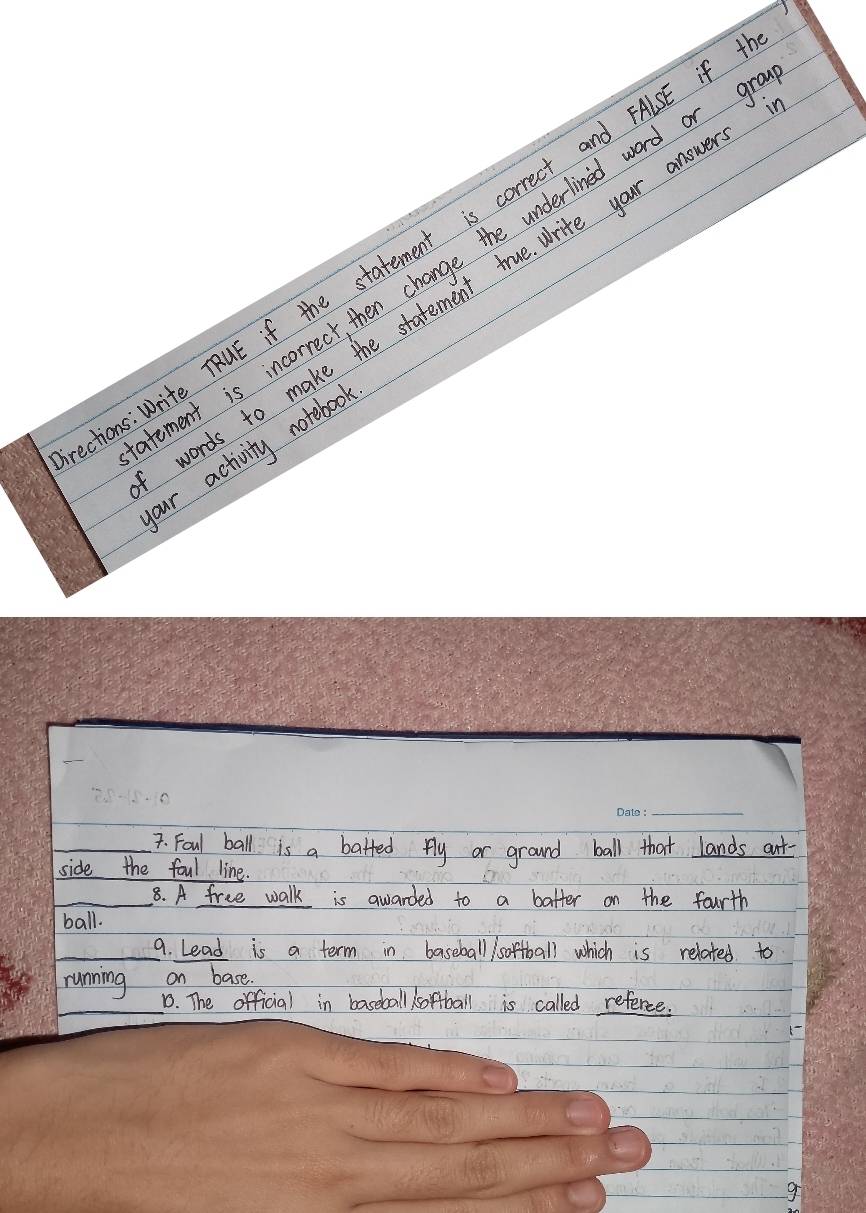 Directions: Write TRUE if the statement is correct and FALSE if the
statement is incorrect, then change the underlined word or group
of words to make the statement true. Write your answers in
your activity notebook.
01-21-25
Date :
7. Foul ball is a batted fly or ground ball that lands out-
side the foul line.
8. A free walk is awarded to a batter on the fourth
ball.
9. Lead is a term in baseball/softball which is related to
running on base.
10. The official in baseball/softball is called referee.